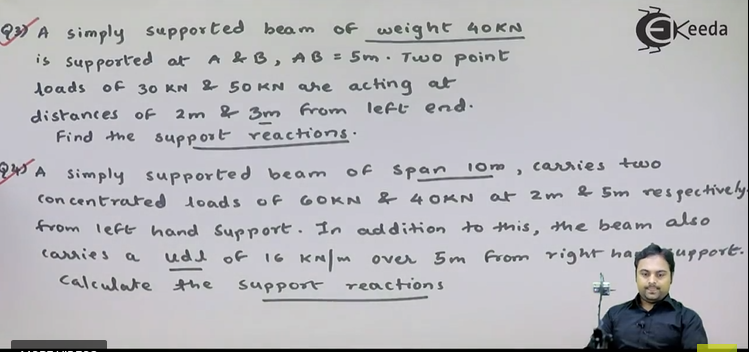 Q3) A simply supported beam of weight 40KN
is supported at A & B, AB = 5m. Two point
loads of 30 KN & 50 KN are acting at
distances of 2m & 3m from left end.
Find the support reactions.
Q4) A simply supported beam of span 10m, carries two
concentrated loads of 60KN & 40KN at 2m & 5m respectively
from left hand support. In addition to this, the beam also
carries a udl of 16 KN/m over 5m from right support.
Calculate the support reactions
EKeeda